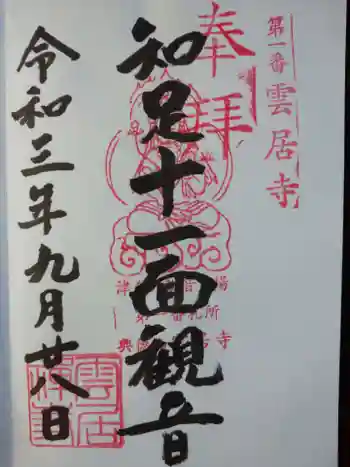 奉拝
第一番 雲居寺
知足十一面観音
令和三年九月廿八日